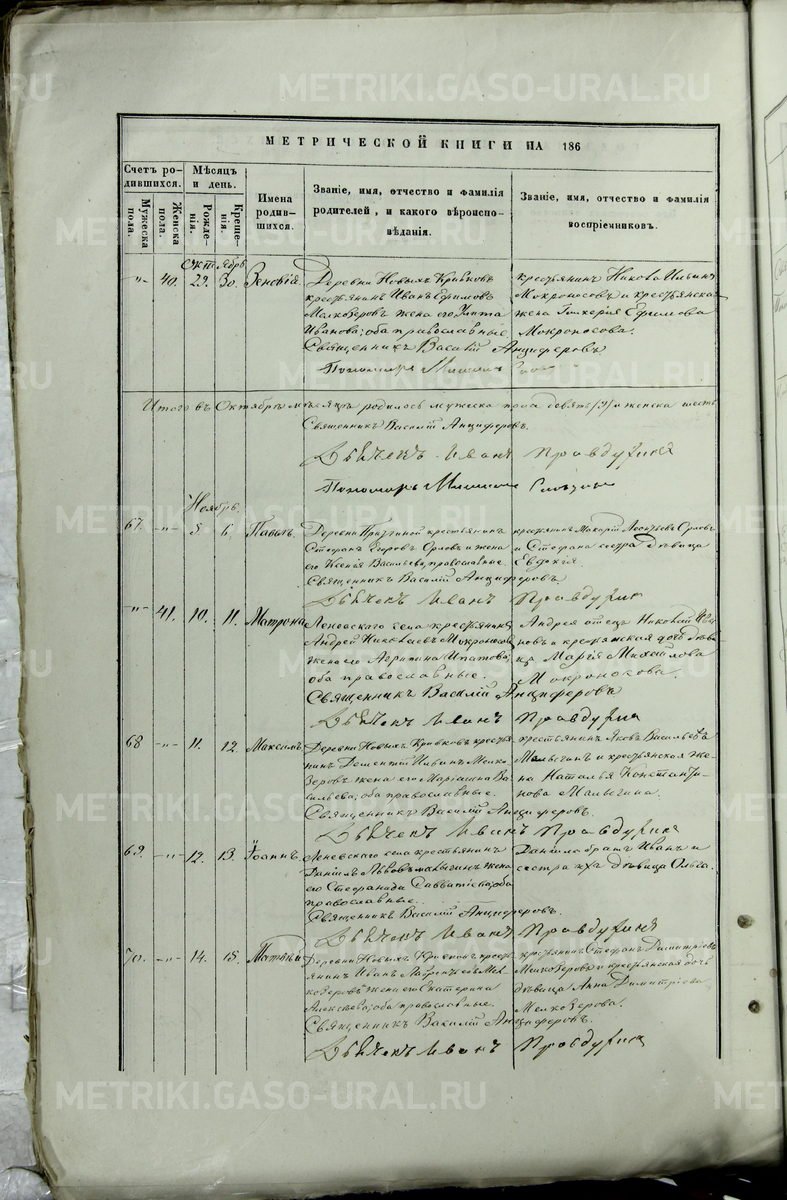 МЕТРИЧЕСКОЙ КНИГИ НА 186
Счетъ ро-
дившихся.
Мужеска
пола.
Женска
пола.
Мѣсяцъ
и день.
Рожде-
нія.
Креще-
нія.
Имена
родив-
шихся.
Званіе, имя, отчество и фамилія
родителей, и какого вѣроиспо-
вѣданія.
Званіе, имя, отчество и фамилія
воспріемниковъ.
Октябрь
40. 29. 30. Зеновія.
Деревни Новыхъ Кривковъ
крестьянинъ Иванъ Ефимовъ
Мелкозеровъ жена его
Иванова; оба православные
Священникъ Василій Анциферовъ
Пономарь
крестьянинъ
Мокроносовъ и крестьянска
жена Ефимова
Мокроносова.
Итого въ Октябрѣ мѣсяцѣ родилось мужеска пола девять (9) и женска шесть
Священникъ Василій Анциферовъ.
Дьячекъ Иванъ Правдухинъ
Пономарь
Ноябрь.
67. 5 6. Павелъ.
Деревни крестьянинъ
Стефанъ Егоровъ Орловъ и жена
его Ксенія Васильева, православные.
Священникъ Василій Анциферовъ
крестьянинъ Леонтьевъ Орловъ
и Стефана сестра дѣвица
Евдокія.
Дьячекъ Иванъ Правдухинъ
41. 10. 11. Матрона
Леневского села крестьянинъ
Андрей Николаевъ Мокроносовъ
жена его Агрипина Ипатова;
оба православные.
Священникъ Василій Анциферовъ
Андрея отецъ Николай
и крестьянская дочь дѣви
ца Марія Михайлова
Мокроносова.
Дьячекъ Иванъ Правдухинъ
68 11. 12. Максимъ
Деревни Новыхъ Кривковъ крестья
нинъ Дементій Мелко
зеровъ жена его Маріамна Ва
сильева; оба православные.
Священникъ Василій Анциферовъ.
крестьянинъ Яковъ Васильевъ
Малыгинъ и крестьянская же
на Наталья Константи
нова Малыгина.
Дьячекъ Иванъ Правдухинъ
69. 12. 13. Іоаннъ
Леневского села крестьянинъ
Даніилъ Львовъ Малыгинъ жена
его Стефанида оба
православные.
Священникъ Василій Анциферовъ.
Даніила братъ Иванъ и
сестра ихъ дѣвица Ольга.
Дьячекъ Иванъ Правдухинъ
70. 14. 15. Матвѣй
Деревни Новыхъ Кривковъ кресть
янинъ Иванъ Лаврентьевъ Мел
козеровъ жена его Екатерина
Алексѣева; оба православные.
Священникъ Василій Анциферовъ.
крестьянинъ Стефанъ Димитріевъ
Мелкозеровъ и крестьянская дочь
дѣвица Анна Димитріева
Мелкозерова.
Дьячекъ Иванъ Правдухинъ
METRIKI.GASO-URAL.RU